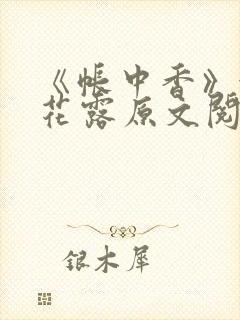 《帐中香》
花露原文阅
银木犀